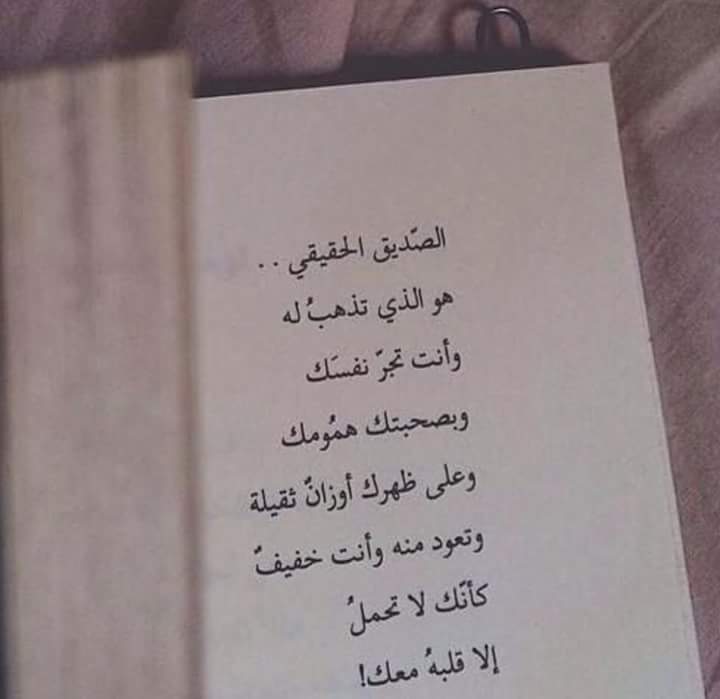 الصّديق الحقيقي ..
هو الذي تذهبُ له
وأنت تجرّ نفسَك
وبصحبتك همُومك
وعلى ظهرك أوزانٌ ثقيلة
وتعود منه وأنت خفيفٌ
كأنّك لا تحملُ
إلا قلبهُ معك!